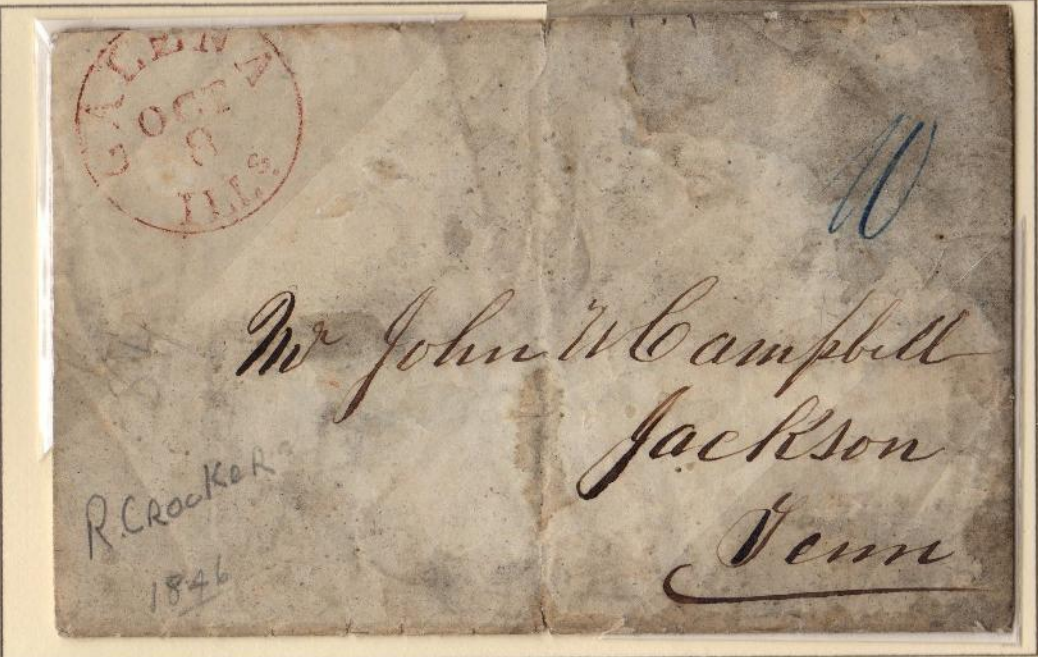 GALENA
OCT
ILLS
10
Mr John W Campbell
Jackson
Tenn
R. CROCKER
1846